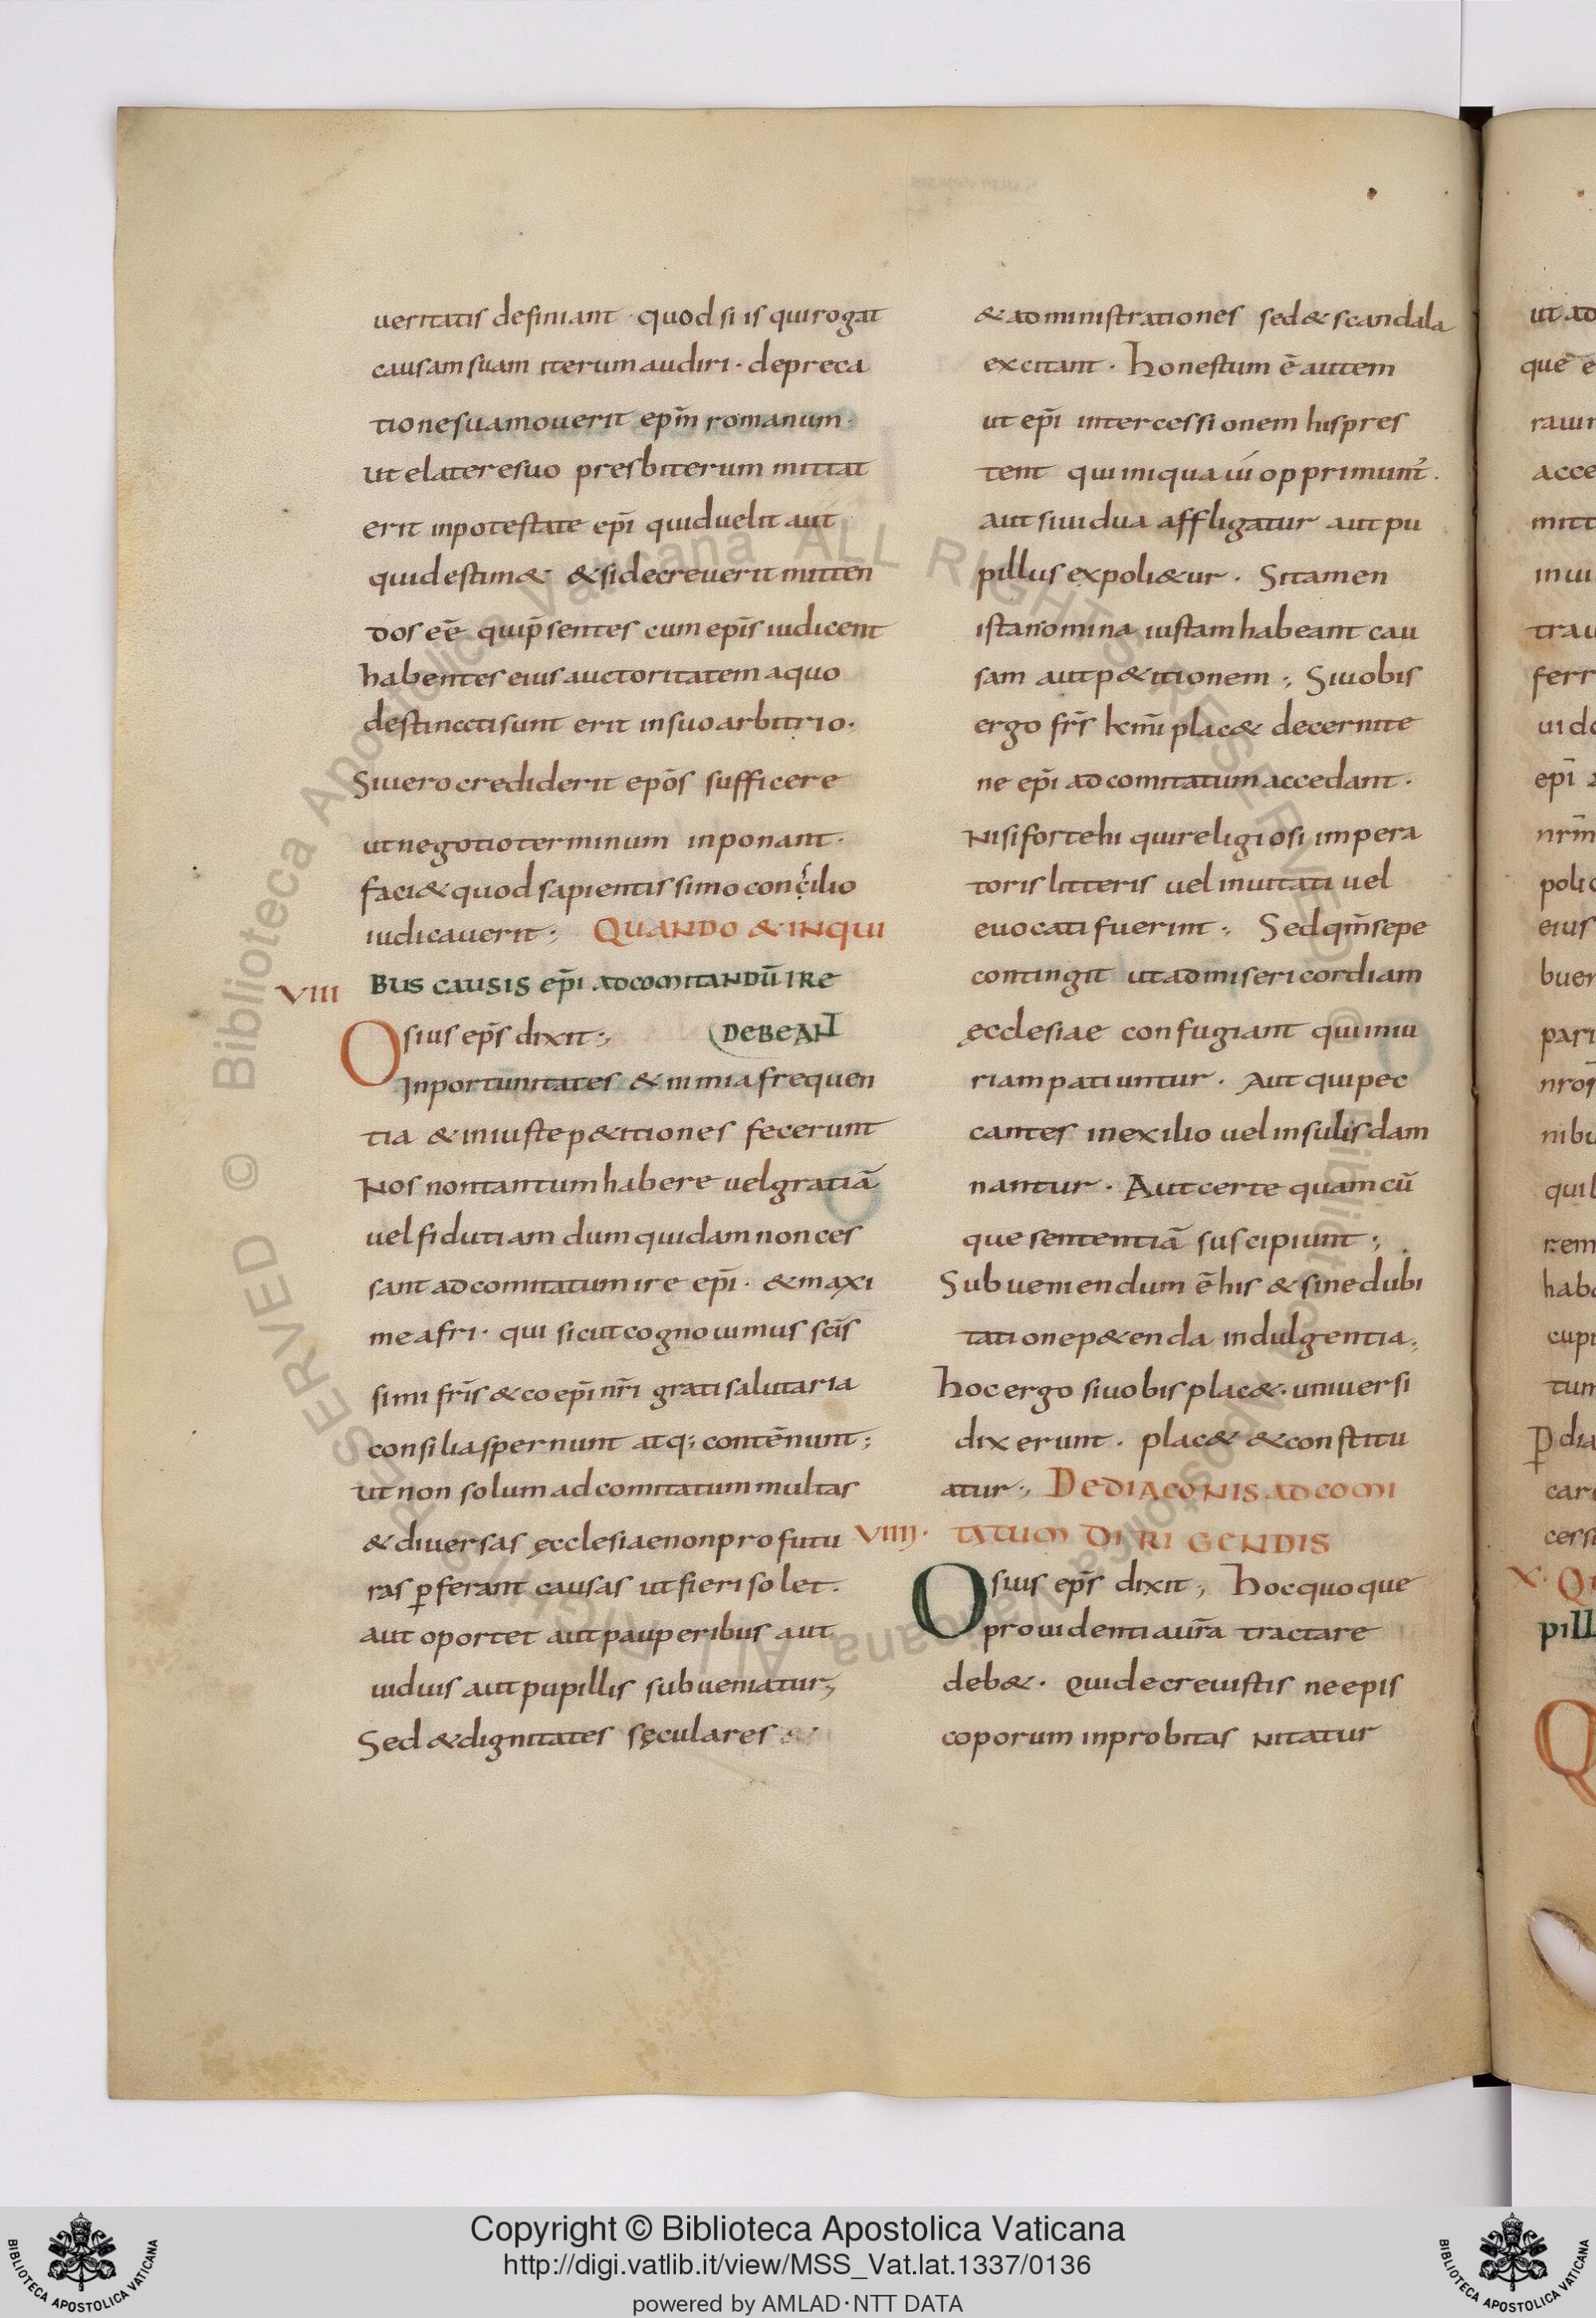 ueritatis definiant · quod si is qui rogat
causam suam iterum audiri · depreca
tione sua mouerit ep̄m romanum ·
ut e latere suo presbiterum mittat
erit in potestate ep̄i quid uelit aut
quid estim& · & si decreuerit mitten
dos eē qui p̄sentes cum ep̄is iudicent
habentes eius auctoritatem a quo
destinccti sunt erit in suo arbitrio ·
Si uero crediderit epōs sufficere
ut negotio terminum inponant ·
faci& quod sapientissimo concilio
iudicauerit ; QUANDO & INQUI
VIII BUS CAUSIS ep̄i ADCOMITANDŪ IRE
Osius ep̄s dixit ; DEBEANT
Inportunitates & nimia frequen
tia & iniuste p&itiones fecerunt
Nos non tantum habere uel gratiā
uel fidutiam dum quidam non ces
sant ad comitatum ire ep̄i · & maxi
me afri · qui sicut cognouimus sc̄is
simi fr̄is & coep̄i nr̄i grati salutaria
consilia spernunt atq; contēnunt ;
ut non solum ad comitatum multas
& diuersas ęcclesiae non profutu
ras p̱ferant causas ut fieri solet ·
aut oportet aut pauperibus aut
uiduis aut pupillis subueniatur ;
Sed & dignitates sęculares
& administrationes sed & scandala
excitant · honestum ē autem
ut ep̄i intercessionem his pres
tent qui iniqua ui opprimunt̄ ·
aut si uidua affligatur aut pu
pillus expoli&ur · Si tamen
ista nomina iustam habeant cau
sam aut p&itionem ; Si uobis
ergo fr̄s km̄i plac& decernite
ne ep̄i ad comitatum accedant ·
Nisi forte hi qui religiosi impera
toris litteris uel inuitati uel
euocati fuerint ; Sed qm̄ sepe
contingit ut ad misericordiam
ęcclesiae confugiant qui iniu
riam patiuntur · Aut qui pec
cantes in exilio uel insulis dam
nantur · Aut certe quamcū
que sententiā suscipiunt ;
Subueniendum ē his & sine dubi
tatione p&enda indulgentia ;
hoc ergo si uobis plac& · uniuersi
dixerunt · plac& & constitu
atur ; DE DIACONIS AD COMI
VIIII · TATUM DIRIGENDIS
Osius ep̄s dixit ; hoc quoque
prouidentia ur̄a tractare
deb& · qui decreuistis ne epis
coporum inprobitas nitatur
Copyright © Biblioteca Apostolica Vaticana
http://digi.vatlib.it/view/MSS_Vat.lat.1337/0136
powered by AMLAD·NTT DATA
BIBLIOTECA APOSTOLICA VATICANA
BIBLIOTECA APOSTOLICA VATICANA